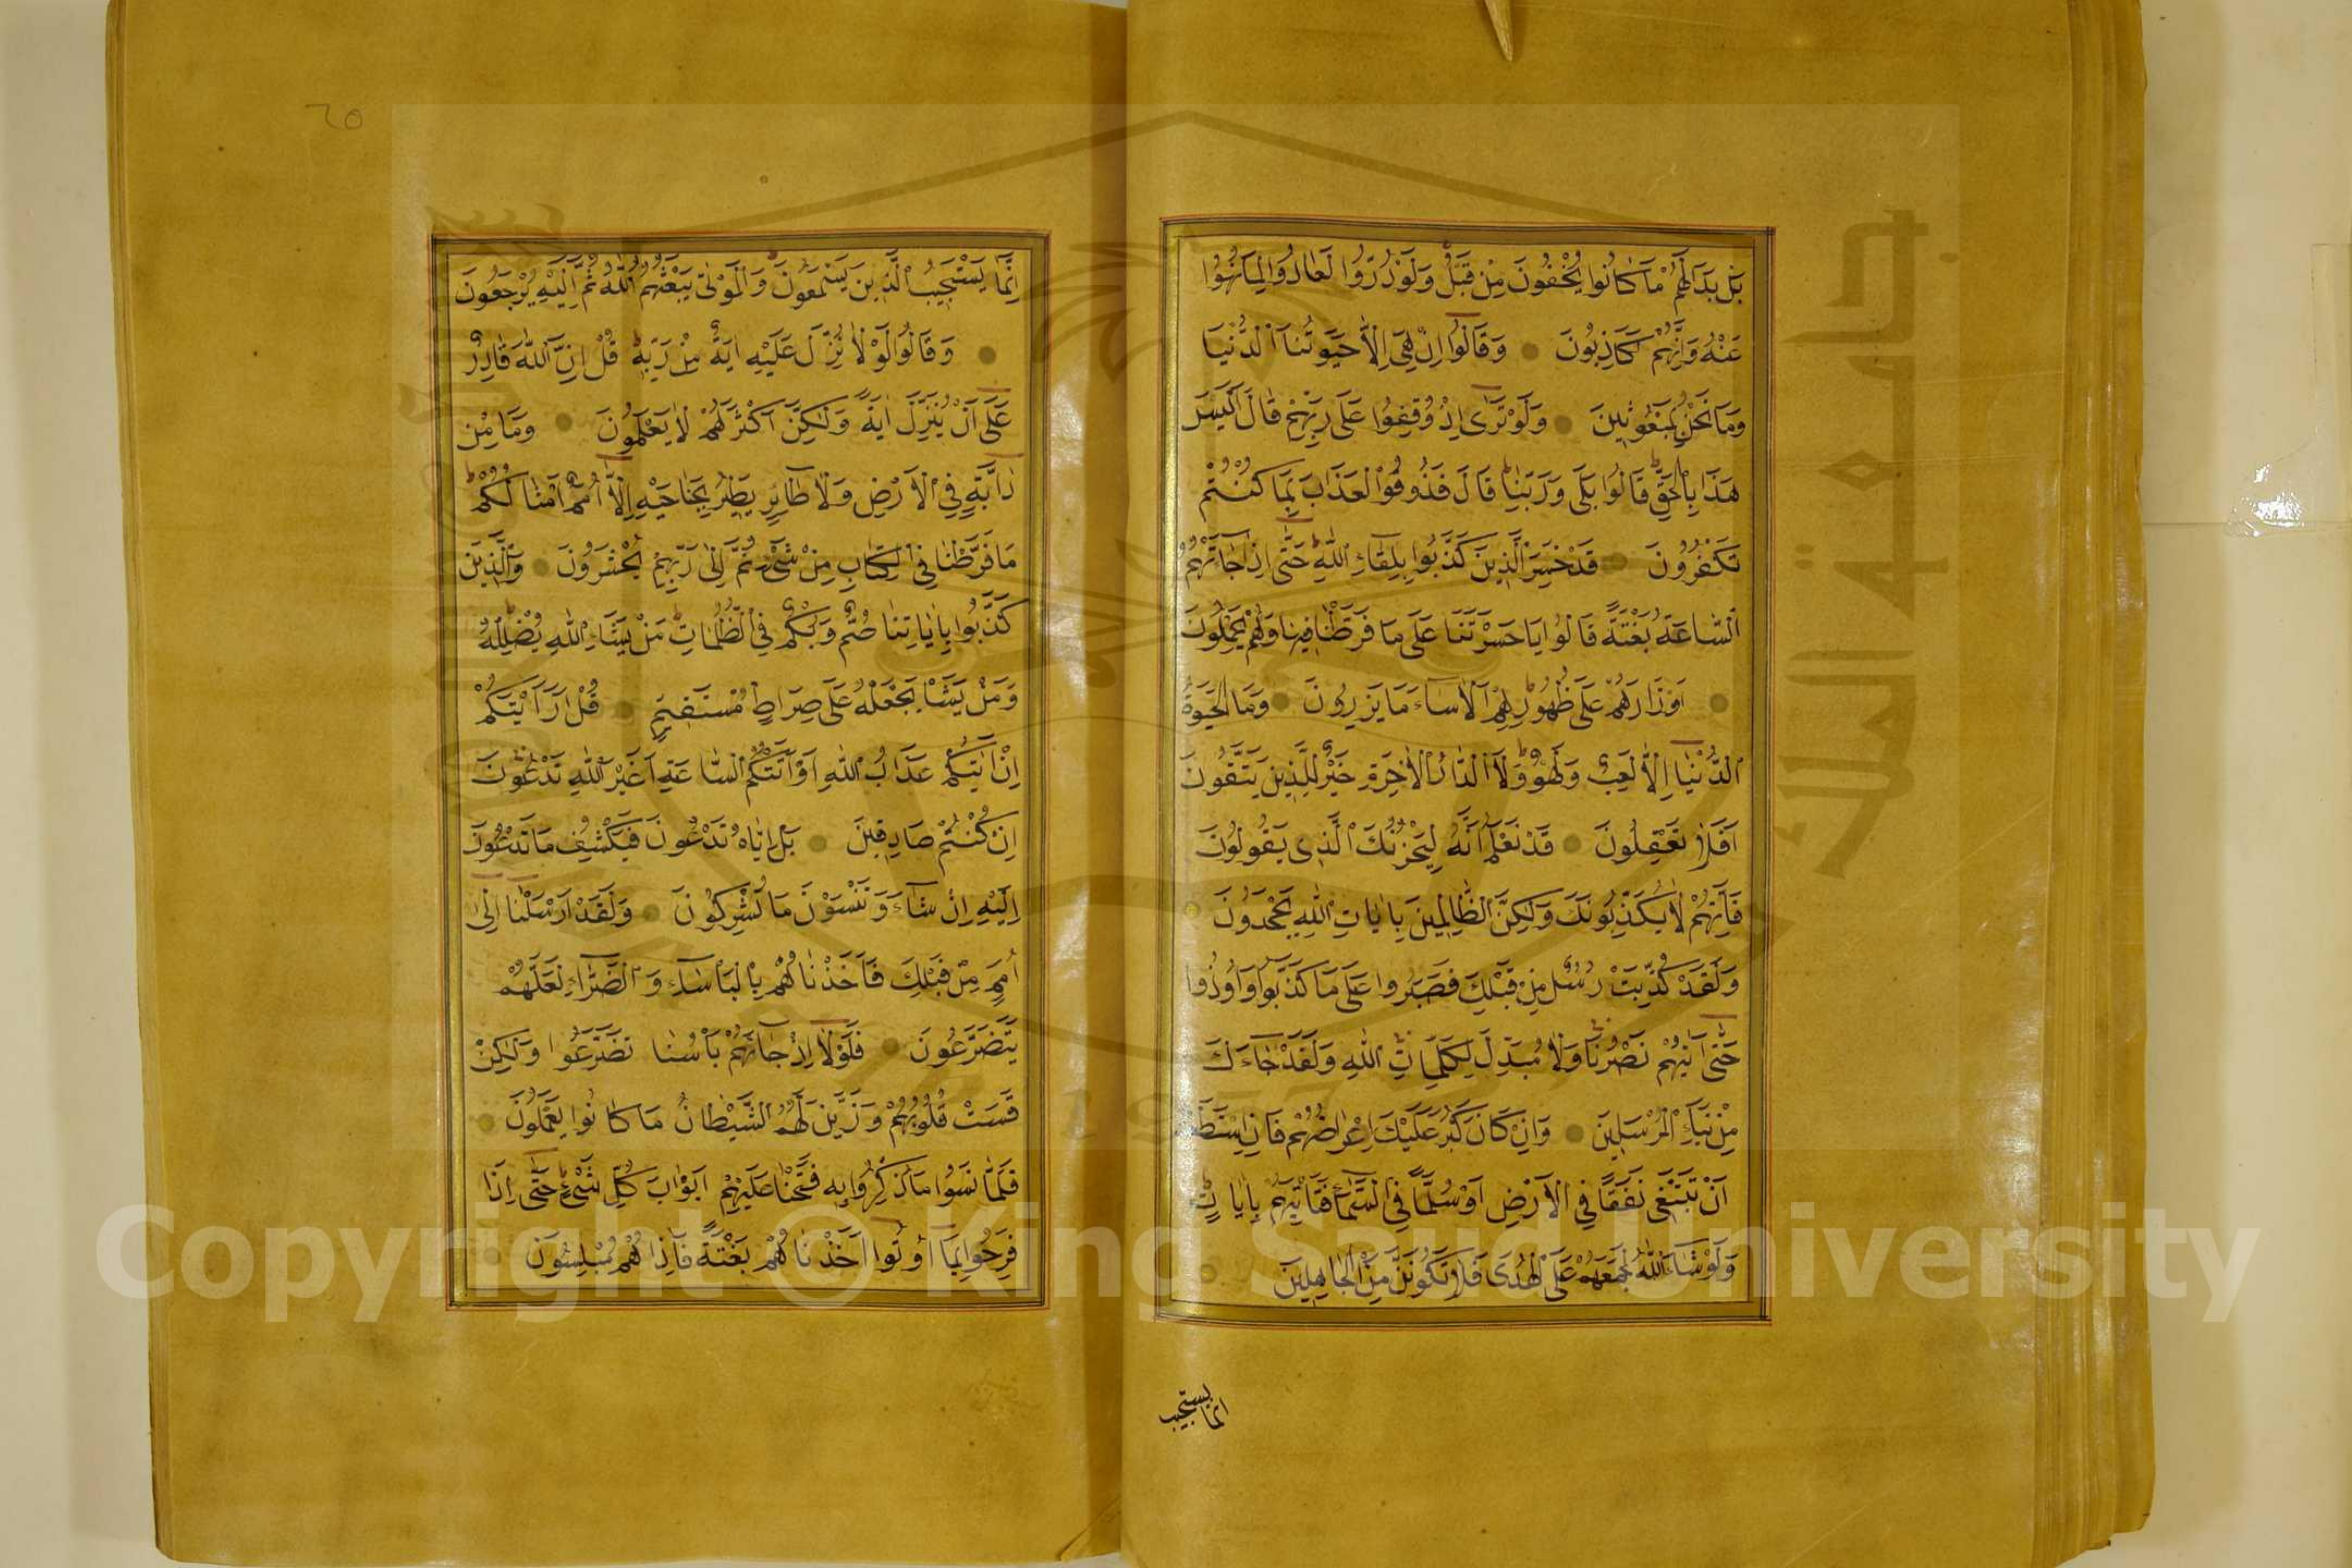 بَلْ بَدَا لَهُمْ مَا كَانُوا يُخْفُونَ مِنْ قَبْلُ وَلَوْ رُدُّوا لَعَادُوا لِمَا نُهُوا
عَنْهُ وَاِنَّهُمْ لَكَاذِبُونَ وَقَالُوا اِنْ هِىَ اِلَّا حَيٰوتُنَا الدُّنْيَا
وَمَا نَحْنُ بِمَبْعُوثِينَ وَلَوْ تَرٰى اِذْ وُقِفُوا عَلٰى رَبِّهِمْ قَالَ اَلَيْسَ
هٰذَا بِالْحَقِّ قَالُوا بَلٰى وَرَبِّنَا قَالَ فَذُوقُوا الْعَذَابَ بِمَا كُنْتُمْ
تَكْفُرُونَ قَدْ خَسِرَ الَّذِينَ كَذَّبُوا بِلِقَاءِ اللّٰهِ حَتّٰى اِذَا جَاءَتْهُمُ
السَّاعَةُ بَغْتَةً قَالُوا يَا حَسْرَتَنَا عَلٰى مَا فَرَّطْنَا فِيهَا وَهُمْ يَحْمِلُونَ
اَوْزَارَهُمْ عَلٰى ظُهُورِهِمْ اَلَا سَاءَ مَا يَزِرُونَ وَمَا الْحَيٰوةُ
الدُّنْيَا اِلَّا لَعِبٌ وَلَهْوٌ وَلَلدَّارُ الْاٰخِرَةُ خَيْرٌ لِلَّذِينَ يَتَّقُونَ
اَفَلَا تَعْقِلُونَ قَدْ نَعْلَمُ اَنَّهُ لَيَحْزُنُكَ الَّذِى يَقُولُونَ
فَاِنَّهُمْ لَا يُكَذِّبُونَكَ وَلٰكِنَّ الظَّالِمِينَ بِاٰيَاتِ اللّٰهِ يَجْحَدُونَ
وَلَقَدْ كُذِّبَتْ رُسُلٌ مِنْ قَبْلِكَ فَصَبَرُوا عَلٰى مَا كُذِّبُوا وَاُوذُوا
حَتّٰى اَتٰيهُمْ نَصْرُنَا وَلَا مُبَدِّلَ لِكَلِمَاتِ اللّٰهِ وَلَقَدْ جَاءَكَ
مِنْ نَبَاِ الْمُرْسَلِينَ وَاِنْ كَانَ كَبُرَ عَلَيْكَ اِعْرَاضُهُمْ فَاِنِ اسْتَطَعْتَ
اَنْ تَبْتَغِىَ نَفَقًا فِى الْاَرْضِ اَوْ سُلَّمًا فِى السَّمَاءِ فَتَاْتِيَهُمْ بِاٰيَاتٍ
وَلَوْ شَاءَ اللّٰهُ لَجَمَعَهُمْ عَلَى الْهُدٰى فَلَا تَكُونَنَّ مِنَ الْجَاهِلِينَ
انما يستجيب
٦٥
اِنَّمَا يَسْتَجِيبُ الَّذِينَ يَسْمَعُونَ وَالْمَوْتٰى يَبْعَثُهُمُ اللّٰهُ ثُمَّ اِلَيْهِ يُرْجَعُونَ
وَقَالُوا لَوْلَا نُزِّلَ عَلَيْهِ اٰيَةٌ مِنْ رَبِّهِ قُلْ اِنَّ اللّٰهَ قَادِرٌ
عَلٰى اَنْ يُنَزِّلَ اٰيَةً وَلٰكِنَّ اَكْثَرَهُمْ لَا يَعْلَمُونَ وَمَا مِنْ
دَابَّةٍ فِى الْاَرْضِ وَلَا طَائِرٍ يَطِيرُ بِجَنَاحَيْهِ اِلَّا اُمَمٌ اَمْثَالُكُمْ
مَا فَرَّطْنَا فِى الْكِتَابِ مِنْ شَىْءٍ ثُمَّ اِلٰى رَبِّهِمْ يُحْشَرُونَ وَالَّذِينَ
كَذَّبُوا بِاٰيَاتِنَا صُمٌّ وَبُكْمٌ فِى الظُّلُمَاتِ مَنْ يَشَاءِ اللّٰهُ يُضْلِلْهُ
وَمَنْ يَشَاْ يَجْعَلْهُ عَلٰى صِرَاطٍ مُسْتَقِيمٍ قُلْ اَرَاَيْتَكُمْ
اِنْ اَتٰيكُمْ عَذَابُ اللّٰهِ اَوْ اَتَتْكُمُ السَّاعَةُ اَغَيْرَ اللّٰهِ تَدْعُونَ
اِنْ كُنْتُمْ صَادِقِينَ بَلْ اِيَّاهُ تَدْعُونَ فَيَكْشِفُ مَا تَدْعُونَ
اِلَيْهِ اِنْ شَاءَ وَتَنْسَوْنَ مَا تُشْرِكُونَ وَلَقَدْ اَرْسَلْنَا اِلٰى
اُمَمٍ مِنْ قَبْلِكَ فَاَخَذْنَاهُمْ بِالْبَاْسَاءِ وَالضَّرَّاءِ لَعَلَّهُمْ
يَتَضَرَّعُونَ فَلَوْلَا اِذْ جَاءَهُمْ بَاْسُنَا تَضَرَّعُوا وَلٰكِنْ
قَسَتْ قُلُوبُهُمْ وَزَيَّنَ لَهُمُ الشَّيْطَانُ مَا كَانُوا يَعْمَلُونَ
فَلَمَّا نَسُوا مَا ذُكِّرُوا بِهِ فَتَحْنَا عَلَيْهِمْ اَبْوَابَ كُلِّ شَىْءٍ حَتّٰى اِذَا
فَرِحُوا بِمَا اُوتُوا اَخَذْنَاهُمْ بَغْتَةً فَاِذَا هُمْ مُبْلِسُونَ
Copyright © King Saud University